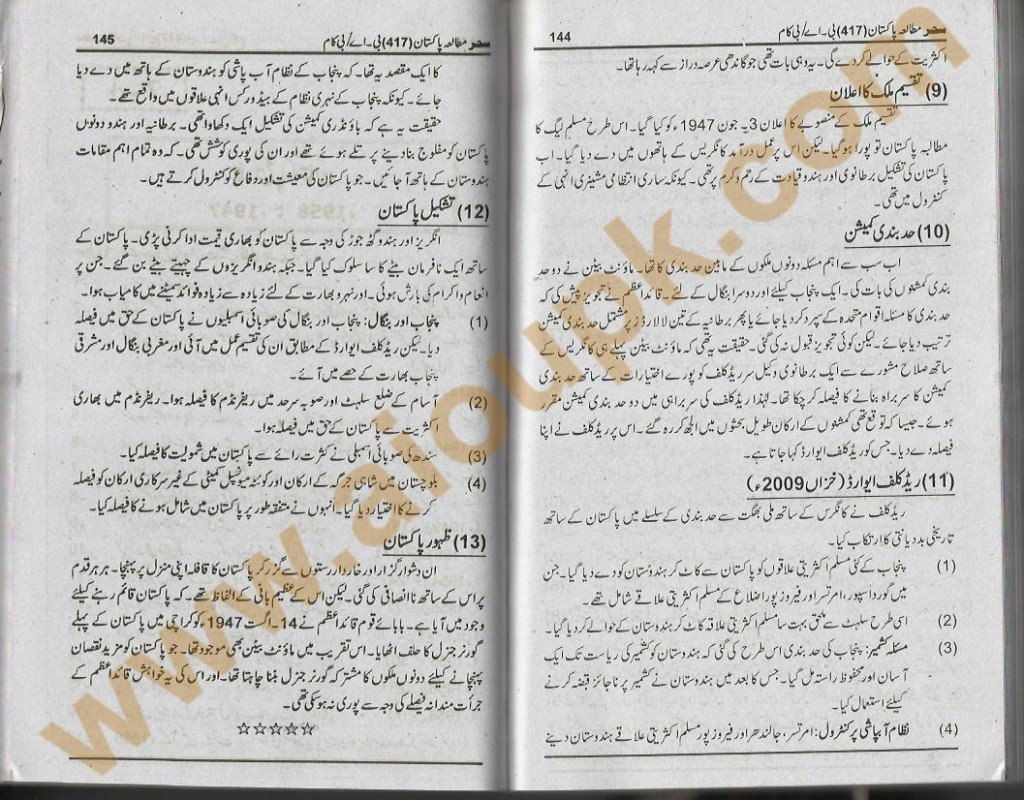 سحر مطالعہ پاکستان (417) بی۔اے/بی کام 144
اکثریت کے حوالے کر دے گی۔ یہ وہی بات تھی جو گاندھی عرصہ دراز سے کہہ رہا تھا۔
(9) تقسیم ملک کا اعلان
تقسیم ملک کے منصوبے کا اعلان 3۔جون 1947ء کو کیا گیا۔ اس طرح مسلم لیگ کا
مطالبہ پاکستان تو پورا ہو گیا۔ لیکن اس پر عمل درآمد کانگریس کے ہاتھوں میں دے دیا گیا۔ اب
پاکستان کی تشکیل برطانوی اور ہندو قیادت کے رحم و کرم پر تھی۔ کیونکہ ساری انتظامی مشینری انہی کے
کنٹرول میں تھی۔
(10) حد بندی کمیشن
اب سب سے اہم مسئلہ دونوں ملکوں کے مابین حد بندی کا تھا۔ ماؤنٹ بیٹن نے دو حد
بندی کمشنوں کی بات کی۔ ایک پنجاب کیلئے اور دوسرا بنگال کے لئے۔ قائداعظم نے تجویز پیش کی کہ
حد بندی کا مسئلہ اقوام متحدہ کے سپرد کر دیا جائے یا پھر برطانیہ کے تین لا لارڈز پر مشتمل حد بندی کمیشن
ترتیب دیا جائے۔ لیکن کوئی تجویز قبول نہ کی گئی۔ حقیقت یہ تھی کہ ماؤنٹ بیٹن پہلے ہی کانگریس کے
ساتھ صلاح مشورے سے ایک برطانوی وکیل سر ریڈ کلف کو پورے اختیارات کے ساتھ حد بندی
کمیشن کا سربراہ بنانے کا فیصلہ کر چکا تھا۔ لہٰذا ریڈ کلف کی سربراہی میں دو حد بندی کمیشن مقرر
ہوئے۔ جیسا کہ توقع تھی کمشنوں کے ارکان طویل بحثوں میں الجھ کر رہ گئے۔ اس پر ریڈ کلف نے اپنا
فیصلہ دے دیا۔ جس کو ریڈ کلف ایوارڈ کہا جاتا ہے۔
(11) ریڈ کلف ایوارڈ (خزاں 2009ء)
ریڈ کلف نے کانگرس کے ساتھ ملی بھگت سے حد بندی کے سلسلے میں پاکستان کے ساتھ
تاریخی بددیانتی کا ارتکاب کیا۔
(1) پنجاب کے کئی مسلم اکثریتی علاقوں کو پاکستان سے کاٹ کر ہندوستان کو دے دیا گیا۔ جن
میں گورداسپور، امرتسر اور فیروز پور اضلاع کے مسلم اکثریتی علاقے شامل تھے۔
(2) اسی طرح سلہٹ سے ملحق بہت سا مسلم اکثریتی علاقہ کاٹ کر ہندوستان کے حوالے کر دیا گیا۔
(3) مسئلہ کشمیر: پنجاب کی حد بندی اس طرح کی گئی کہ ہندوستان کو کشمیر کی ریاست تک ایک
آسان اور محفوظ راستہ مل گیا۔ جس کا بعد میں ہندوستان نے کشمیر پر ناجائز قبضہ کرنے
کیلئے استعمال کیا۔
(4) نظام آبپاشی پر کنٹرول: امرتسر، جالندھر اور فیروز پور مسلم اکثریتی علاقے ہندوستان دینے
سحر مطالعہ پاکستان (417) بی۔اے/بی کام 145
کا ایک مقصد یہ تھا۔ کہ پنجاب کے نظام آب پاشی کو ہندوستان کے ہاتھ میں دے دیا
جائے۔ کیونکہ پنجاب کے نہری نظام کے ہیڈورکس انہی علاقوں میں واقع تھے۔
حقیقت یہ ہے کہ باؤنڈری کمیشن کی تشکیل ایک دکھاوا تھی۔ برطانیہ اور ہندو دونوں
پاکستان کو مفلوج بنا دینے پر تلے ہوئے تھے اور ان کی پوری کوشش تھی۔ کہ وہ تمام اہم مقامات
ہندوستان کے ہاتھ آ جائیں۔ جو پاکستان کی معیشت اور دفاع کو کنٹرول کرتے ہیں۔
(12) تشکیل پاکستان
انگریز اور ہندو گٹھ جوڑ کی وجہ سے پاکستان کو بھاری قیمت ادا کرنی پڑی۔ پاکستان کے
ساتھ ایک نافرمان بیٹے کا سا سلوک کیا گیا۔ جبکہ ہندو انگریزوں کے چہیتے بیٹے بن گئے۔ جن پر
انعام و اکرام کی بارش ہوئی۔ اور نہرو بھارت کے لئے زیادہ سے زیادہ فوائد سمیٹنے میں کامیاب ہوا۔
(1) پنجاب اور بنگال: پنجاب اور بنگال کی صوبائی اسمبلیوں نے پاکستان کے حق میں فیصلہ
دیا۔ لیکن ریڈ کلف ایوارڈ کے مطابق ان کی تقسیم عمل میں آئی اور مغربی بنگال اور مشرقی
پنجاب بھارت کے حصے میں آئے۔
(2) آسام کے ضلع سلہٹ اور صوبہ سرحد میں ریفرنڈم کا فیصلہ ہوا۔ ریفرنڈم میں بھاری
اکثریت سے پاکستان کے حق میں فیصلہ ہوا۔
(3) سندھ کی صوبائی اسمبلی نے کثرت رائے سے پاکستان میں شمولیت کا فیصلہ کیا۔
(4) بلوچستان میں شاہی جرگہ کے ارکان اور کوئٹہ میونسپل کمیٹی کے غیر سرکاری ارکان کو فیصلہ
کرنے کا اختیار دیا گیا۔ انہوں نے متفقہ طور پر پاکستان میں شامل ہونے کا فیصلہ کیا۔
(13) ظہور پاکستان
ان دشوار گزار اور خاردار رستوں سے گزر کر پاکستان کا قافلہ اپنی منزل پر پہنچا۔ ہر ہر قدم
پر اس کے ساتھ ناانصافی کی گئی۔ لیکن اس کے عظیم بانی کے الفاظ تھے۔ کہ پاکستان قائم رہنے کیلئے
وجود میں آیا ہے۔ بابائے قوم قائداعظم نے 14۔اگست 1947ء کو کراچی میں پاکستان کے پہلے
گورنر جنرل کا حلف اٹھایا۔ اس تقریب میں ماؤنٹ بیٹن بھی موجود تھا۔ جو پاکستان کو مزید نقصان
پہنچانے کیلئے دونوں ملکوں کا مشترکہ گورنر جنرل بننا چاہتا تھا۔ اور اس کی یہ خواہش قائداعظم کے
جرأت مندانہ فیصلے کی وجہ سے پوری نہ ہو سکی تھی۔
☆☆☆☆☆
www.aioupk.com